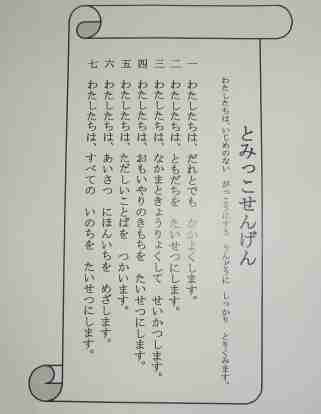 とみっこせんげん
わたしたちは、いじめのない がっこうにする うんどうに しっかり とりくみます。
一 わたしたちは、だれとでも なかよくします。
二 わたしたちは、ともだちを たいせつにします。
三 わたしたちは、なかまときょうりょくして せいかつします。
四 わたしたちは、おもいやりのきもちを たいせつにします。
五 わたしたちは、ただしいことばを つかいます。
六 わたしたちは、あいさつ にほんいちを めざします。
七 わたしたちは、すべての いのちを たいせつにします。